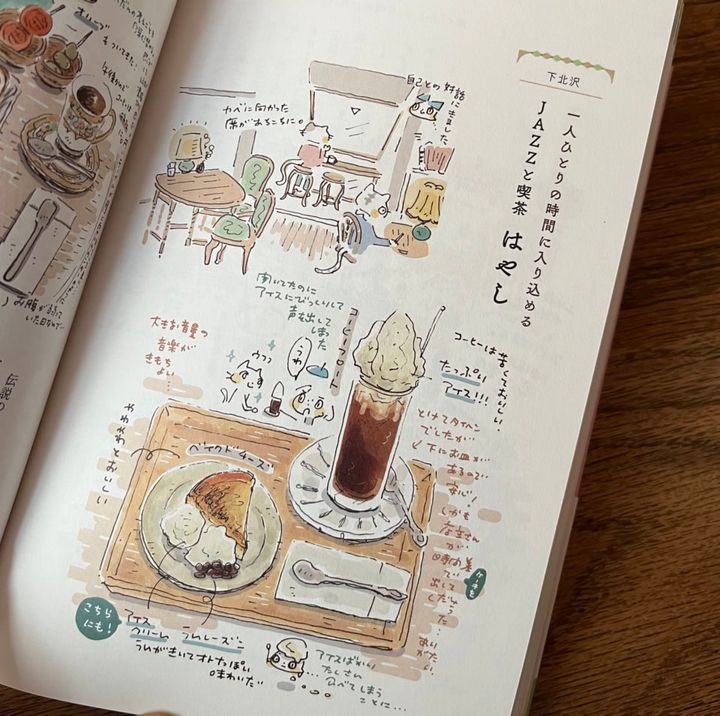 下北沢
一人ひとりの時間に入り込める
JAZZと喫茶 はやし
自己との対話に
きました
カベに向かった
席があちこちに。
聞いてたのに
アイスにびっくりして
声を出して
しまった
大きな音量の
音楽が
きもち
よい…
ウフフ
うわっ
コーヒーフロート
コーヒーは苦くておいしい。
たっぷり
アイス!!!
とけてタイヘン
でしたが
下にお皿が
あるので
安心!
しかも
店主さん
が
ケーキを
出して
ありがたい
やわやわとおいしい
ベイクドチーズ
こちら
にも!
アイス
クリーム
ラムレーズン
ラムがきいてオトナっぽい
味わいだ
アイスばかり
たくさん
食べてしまう
ことに…
お腹が
伝説の